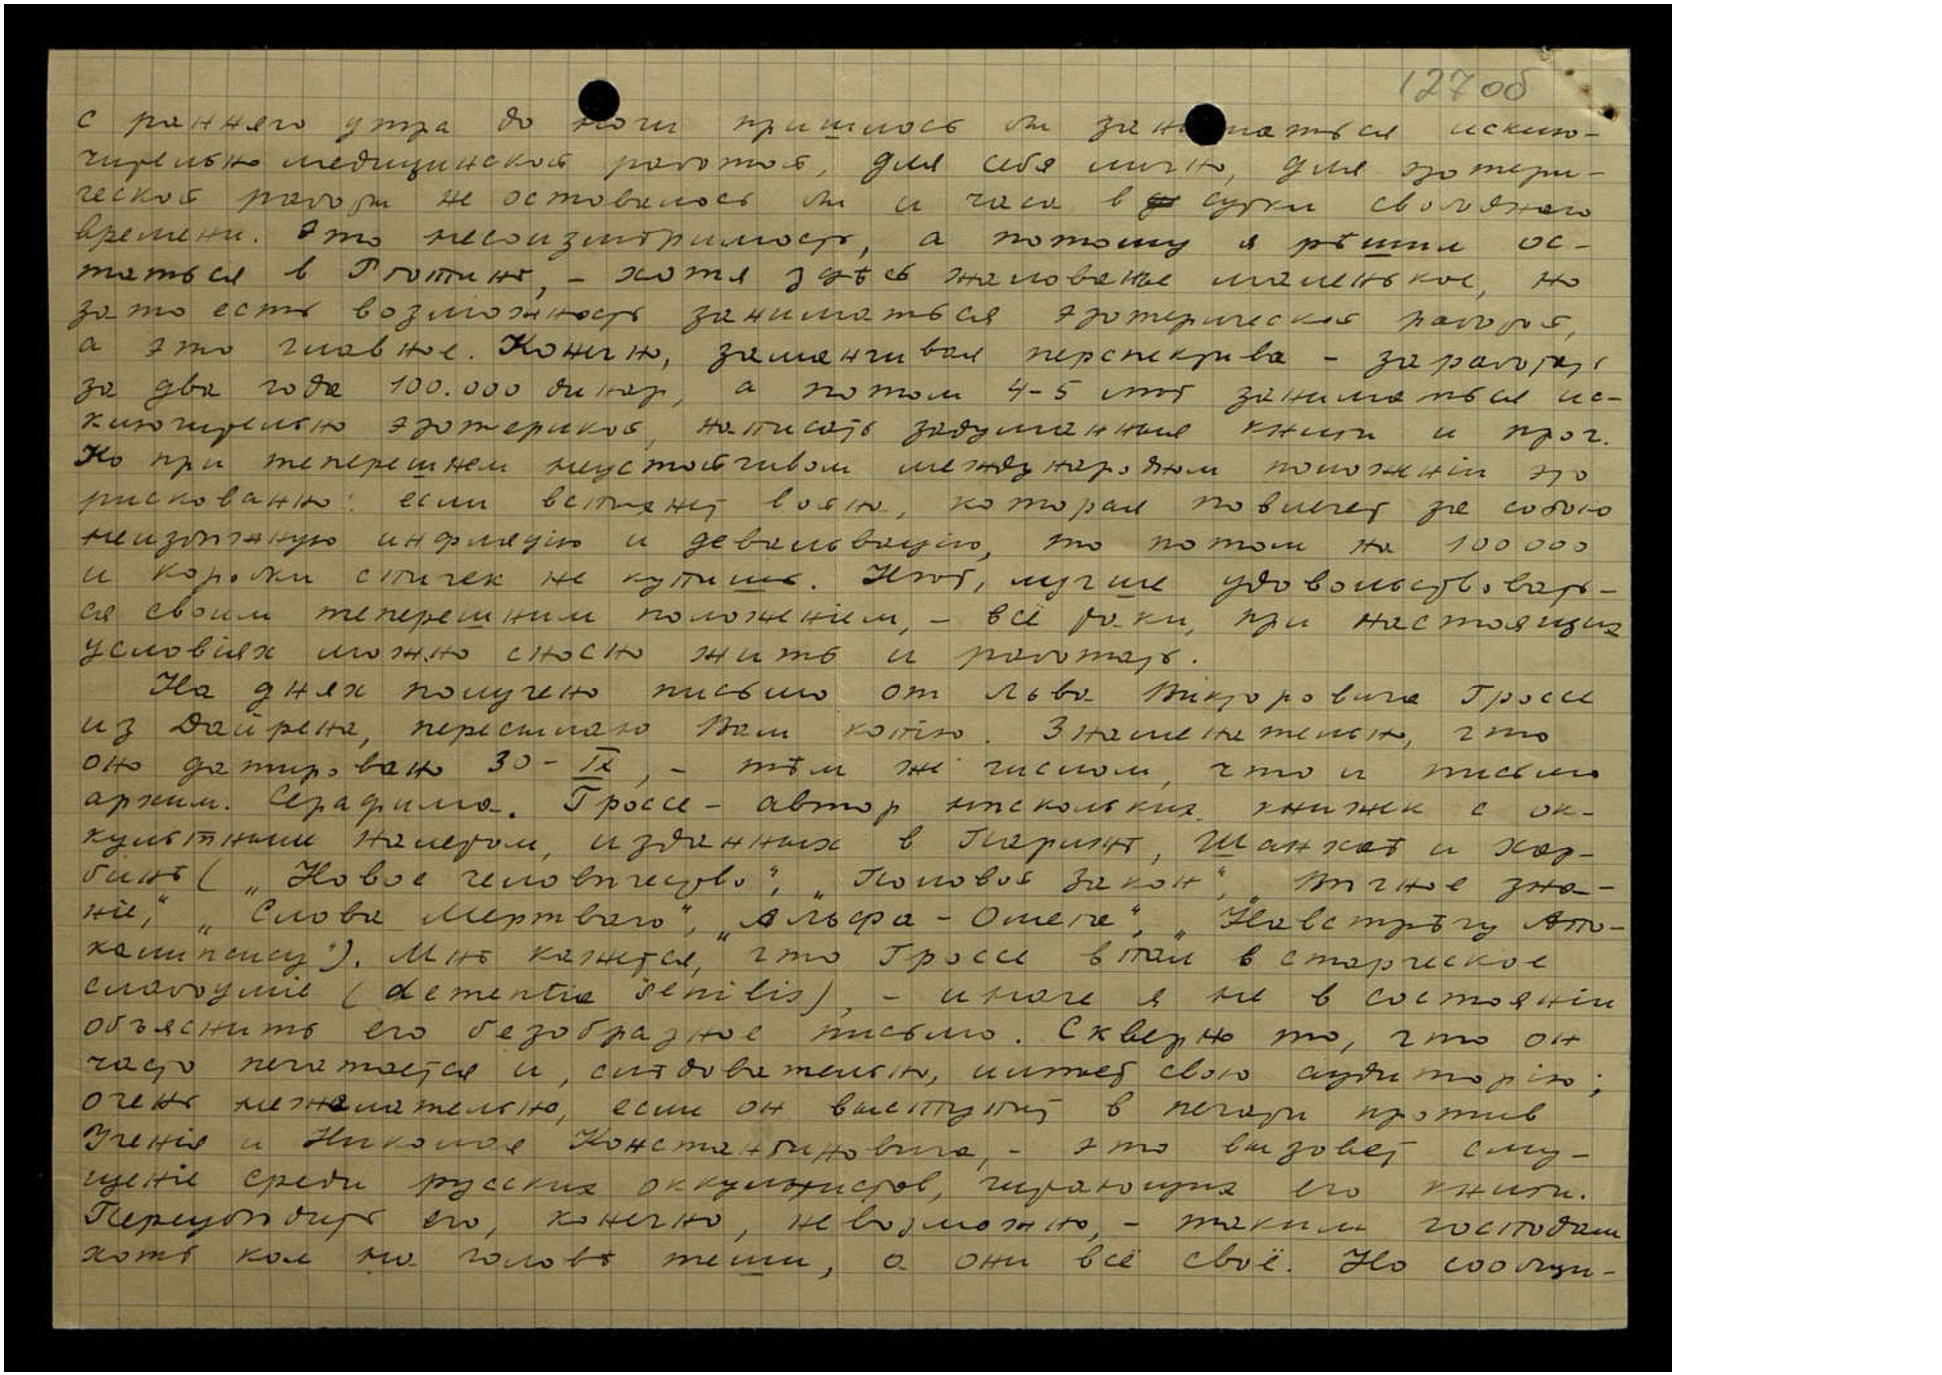 127об
с раннего утра до ночи пришлось бы заниматься исклю-
чительно медицинской работой, для себя лично, для эзотери-
ческой работы не оставалось бы и часа в сутки свободного
времени. Это несоизмѣримость, а потому я рѣшил ос-
таться в Роготинѣ, – хотя здѣсь жалованье маленькое, но
зато есть возможность заниматься эзотерической работой,
а это главное. Конечно, заманчивая перспектива – заработать
за два года 100.000 динар, а потом 4-5 лѣт заниматься ис-
ключительно эзотерикой, написать задуманные книги и проч.
Но при теперешнем неустойчивом международном положеніи это
рискованно: если вспыхнет война, которая повлечет за собою
неизбѣжную инфляцію и девальвацію, то потом на 100000
и коробки спичек не купишь. Нѣт, лучше удовольствовать-
ся своим теперешним положеніем, – всё-таки, при настоящих
условіях можно сносно жить и работать.
На днях получено письмо от Льва Викторовича Гроссе
из Дайрена, пересылаю Вам копію. Знаменательно, что
оно датировано 30-IX, – тѣм же числом, что и письмо
архим. Серафима. Гроссе – автор нѣскольких книжек с ок-
культным налетом, изданных в Парижѣ, Шанхаѣ и Хар-
бинѣ („Новое человѣчество“, „Половой закон“, „Вѣчное зна-
ніе“, „Слова Мертваго“, „Альфа – Омега“, „Навстрѣчу Апо-
калипсису“). Мнѣ кажется, что Гроссе впал в старческое
слабоуміе (dementia senilis), – иначе я не в состояніи
объяснить его безобразное письмо. Скверно то, что он
часто печатается и, слѣдовательно, имѣет свою аудиторію;
очень нежелательно, если он выступит в печати против
Ученія и Николая Константиновича, – это вызовет сму-
щеніе среди русских оккультистов, читающих его книги.
Переубѣдить его, конечно, невозможно, – таким господам
хоть кол на головѣ теши, а они всё своё. Но сообщи-